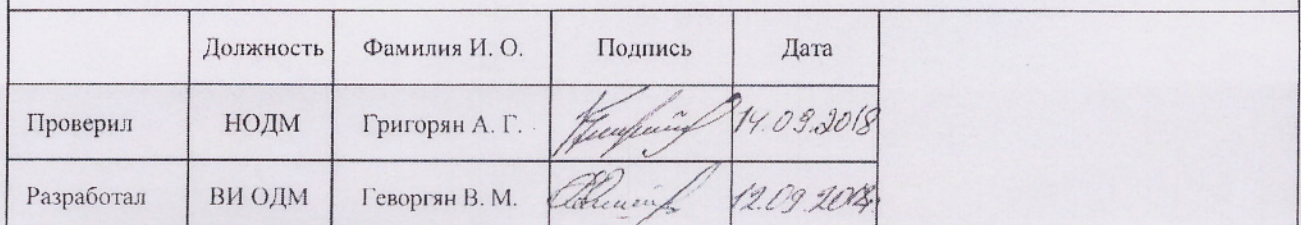 Должность Фамилия И. О. Подпись Дата
Проверил НОДМ Григорян А. Г. 14.09.2018
Разработал ВИ ОДМ Геворгян В. М. 12.09.